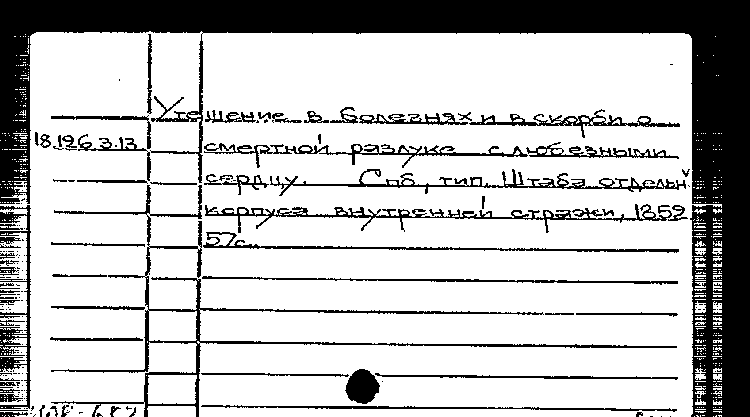 Утешение в болезнях и в скорби о
18.196.3.13. смертной разлуке с любезными
сердцу. Спб, тип. Штаба отдельн
корпуса внутренней стражи, 1859
57с.